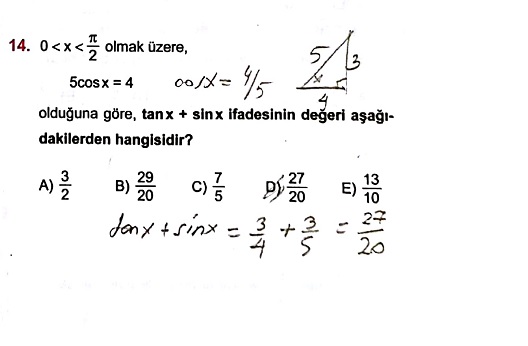 14. 0 < x < π/2 olmak üzere,
5cosx = 4 cosx = 4/5
5 3
x
4
olduğuna göre, tanx + sinx ifadesinin değeri aşağı-
dakilerden hangisidir?
A) 3/2 B) 29/20 C) 7/5 D) 27/20 E) 13/10
tanx + sinx = 3/4 + 3/5 = 27/20